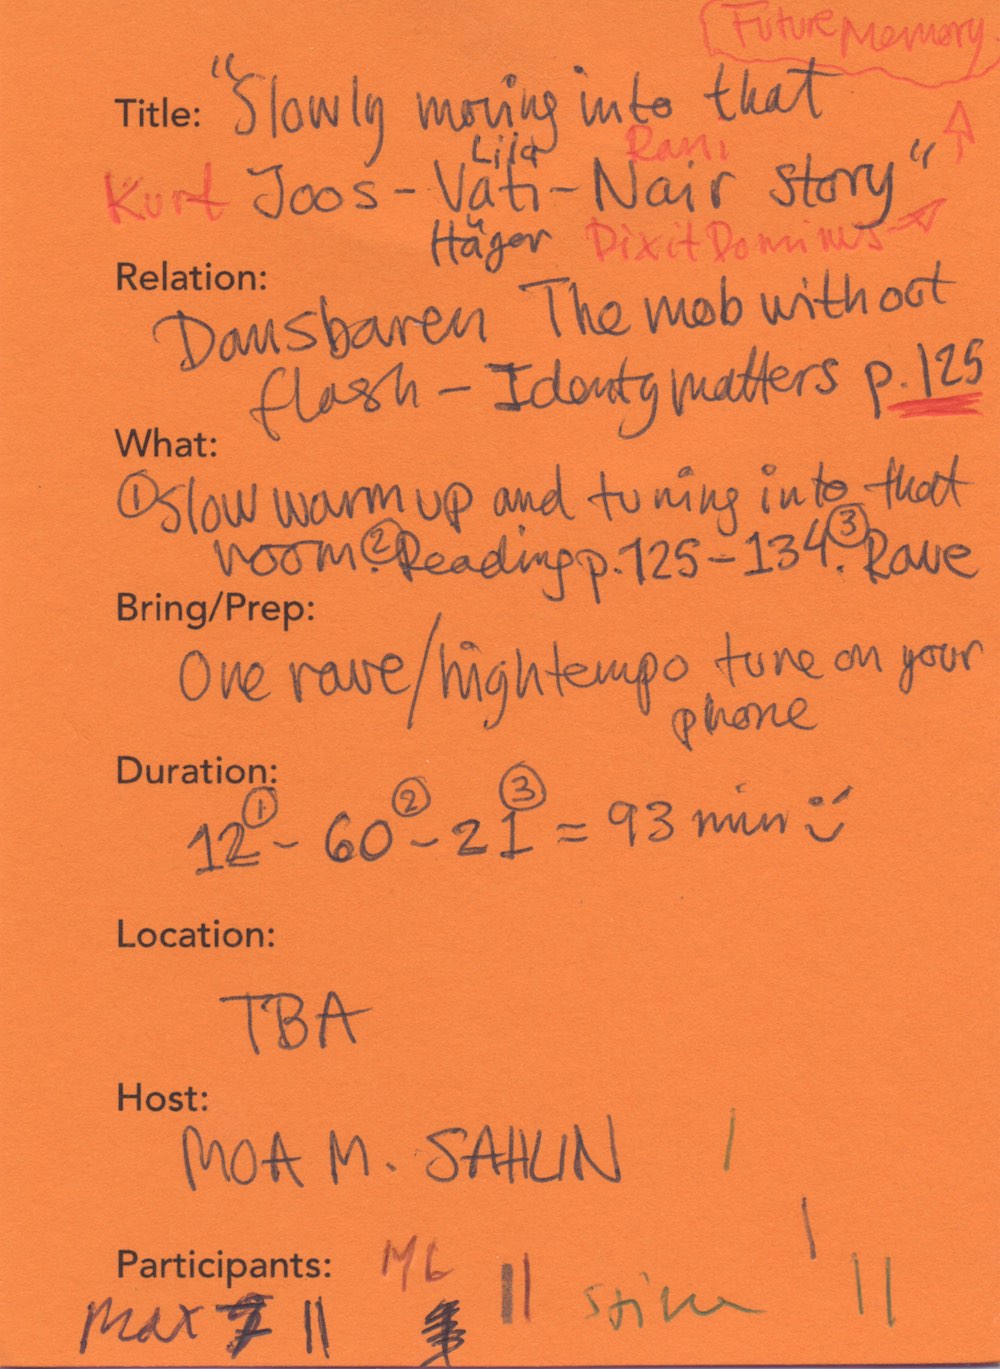 Future Memory
Title: "Slowly moving into that
Lila Rani
Kurt Joos - Väti - Nair story"
Häger Dixit Dominus
Relation:
Dansbaren The mob without
flash - Identity matters p.125
What:
① Slow warm up and tuning into that
room. ② Reading p.125-134. ③ Rave
Bring/Prep:
One rave/high tempo tune on your
phone
Duration:
① ② ③
12 - 60 - 21 = 93 min
Location:
TBA
Host:
MOA M. SAHLIN
Participants:
Max